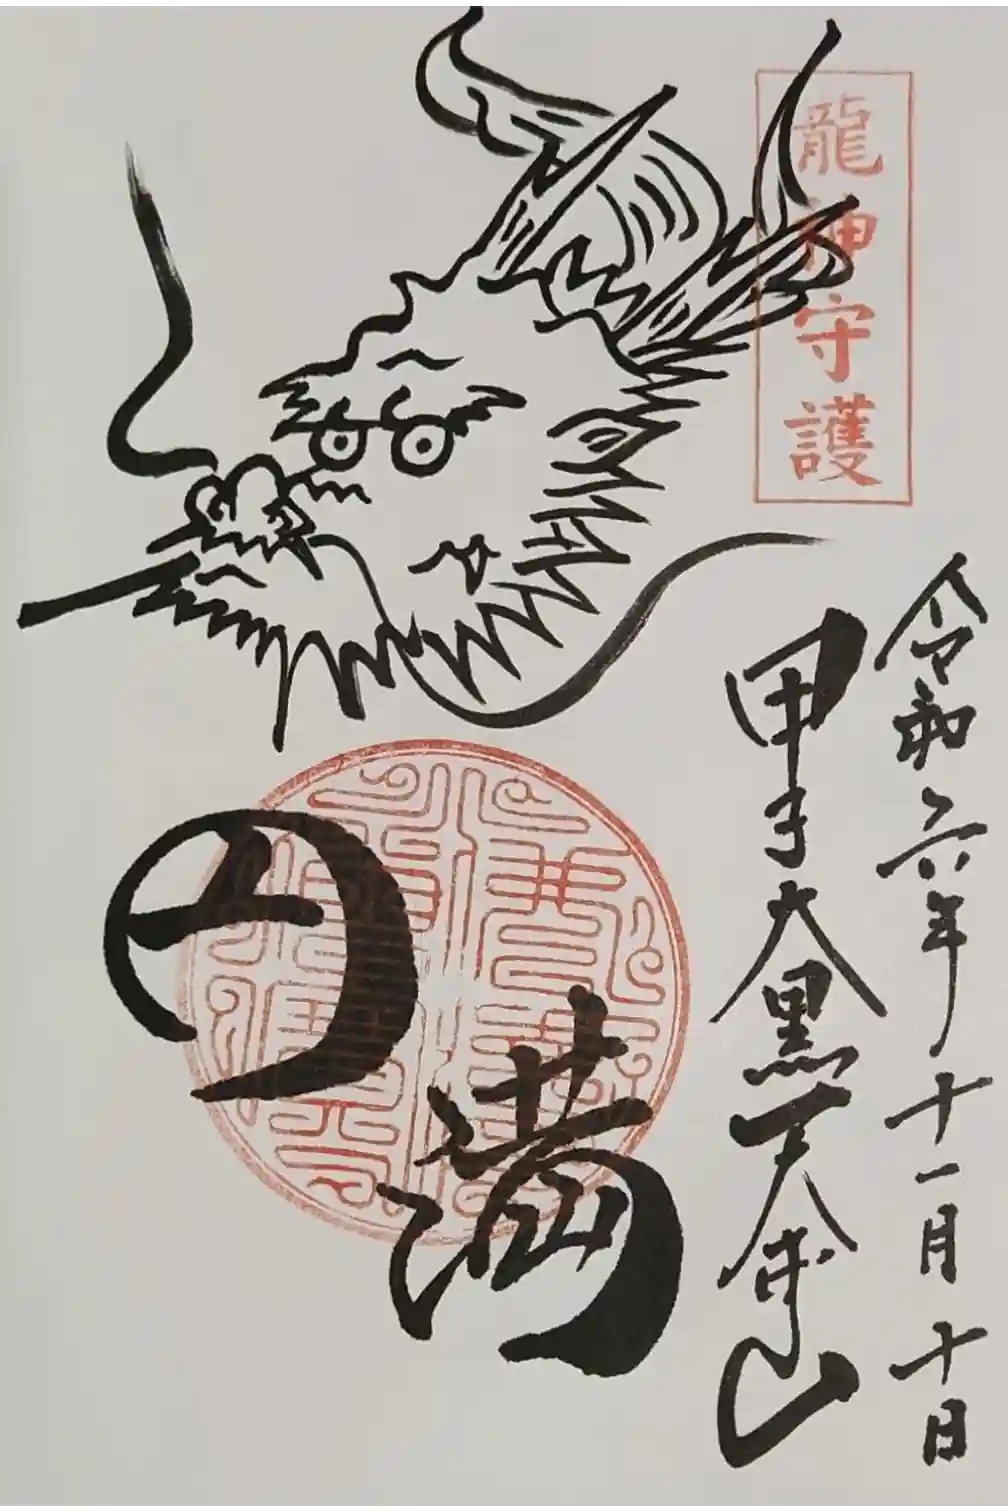 龍神守護
令和六年十一月十日
甲子大黒天本山
円満